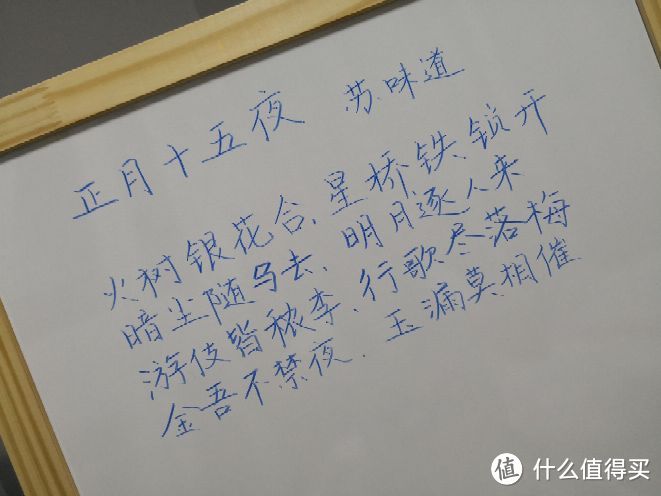 正月十五夜 苏味道
火树银花合,星桥铁锁开
暗尘随马去,明月逐人来
游伎皆秾李,行歌尽落梅
金吾不禁夜.玉漏莫相催
值 什么值得买